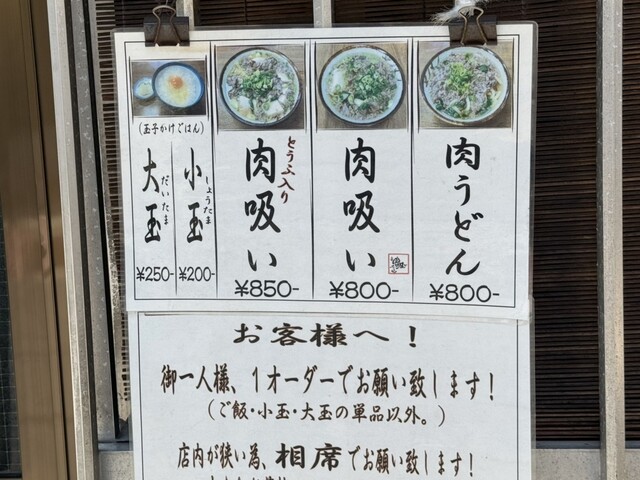 肉うどん
¥800-
肉吸い
¥800-
とうふ入り
肉吸い
¥850-
(玉子かけごはん)
小玉
しょうたま
¥200-
大玉
だいたま
¥250-
お客様へ!
御一人様、1オーダーでお願い致します!
(ご飯・小玉・大玉の単品以外。)
店内が狭い為、相席でお願い致します!